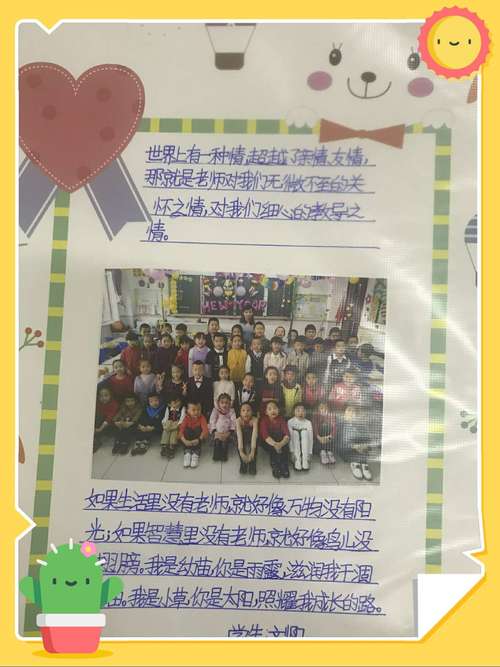 世界上有一种情,超越了亲情、友情,
那就是老师对我们无微不至的关
怀之情,对我们细心的教导之
情。
NEW YEAR
如果生活里没有老师,就好像万物没有阳
光;如果智慧里没有老师,就好像鸟儿没
翅膀。我是幼苗,你是雨露,滋润我干涸
田。我是小草,你是太阳,照耀我成长的路。
学生:刘